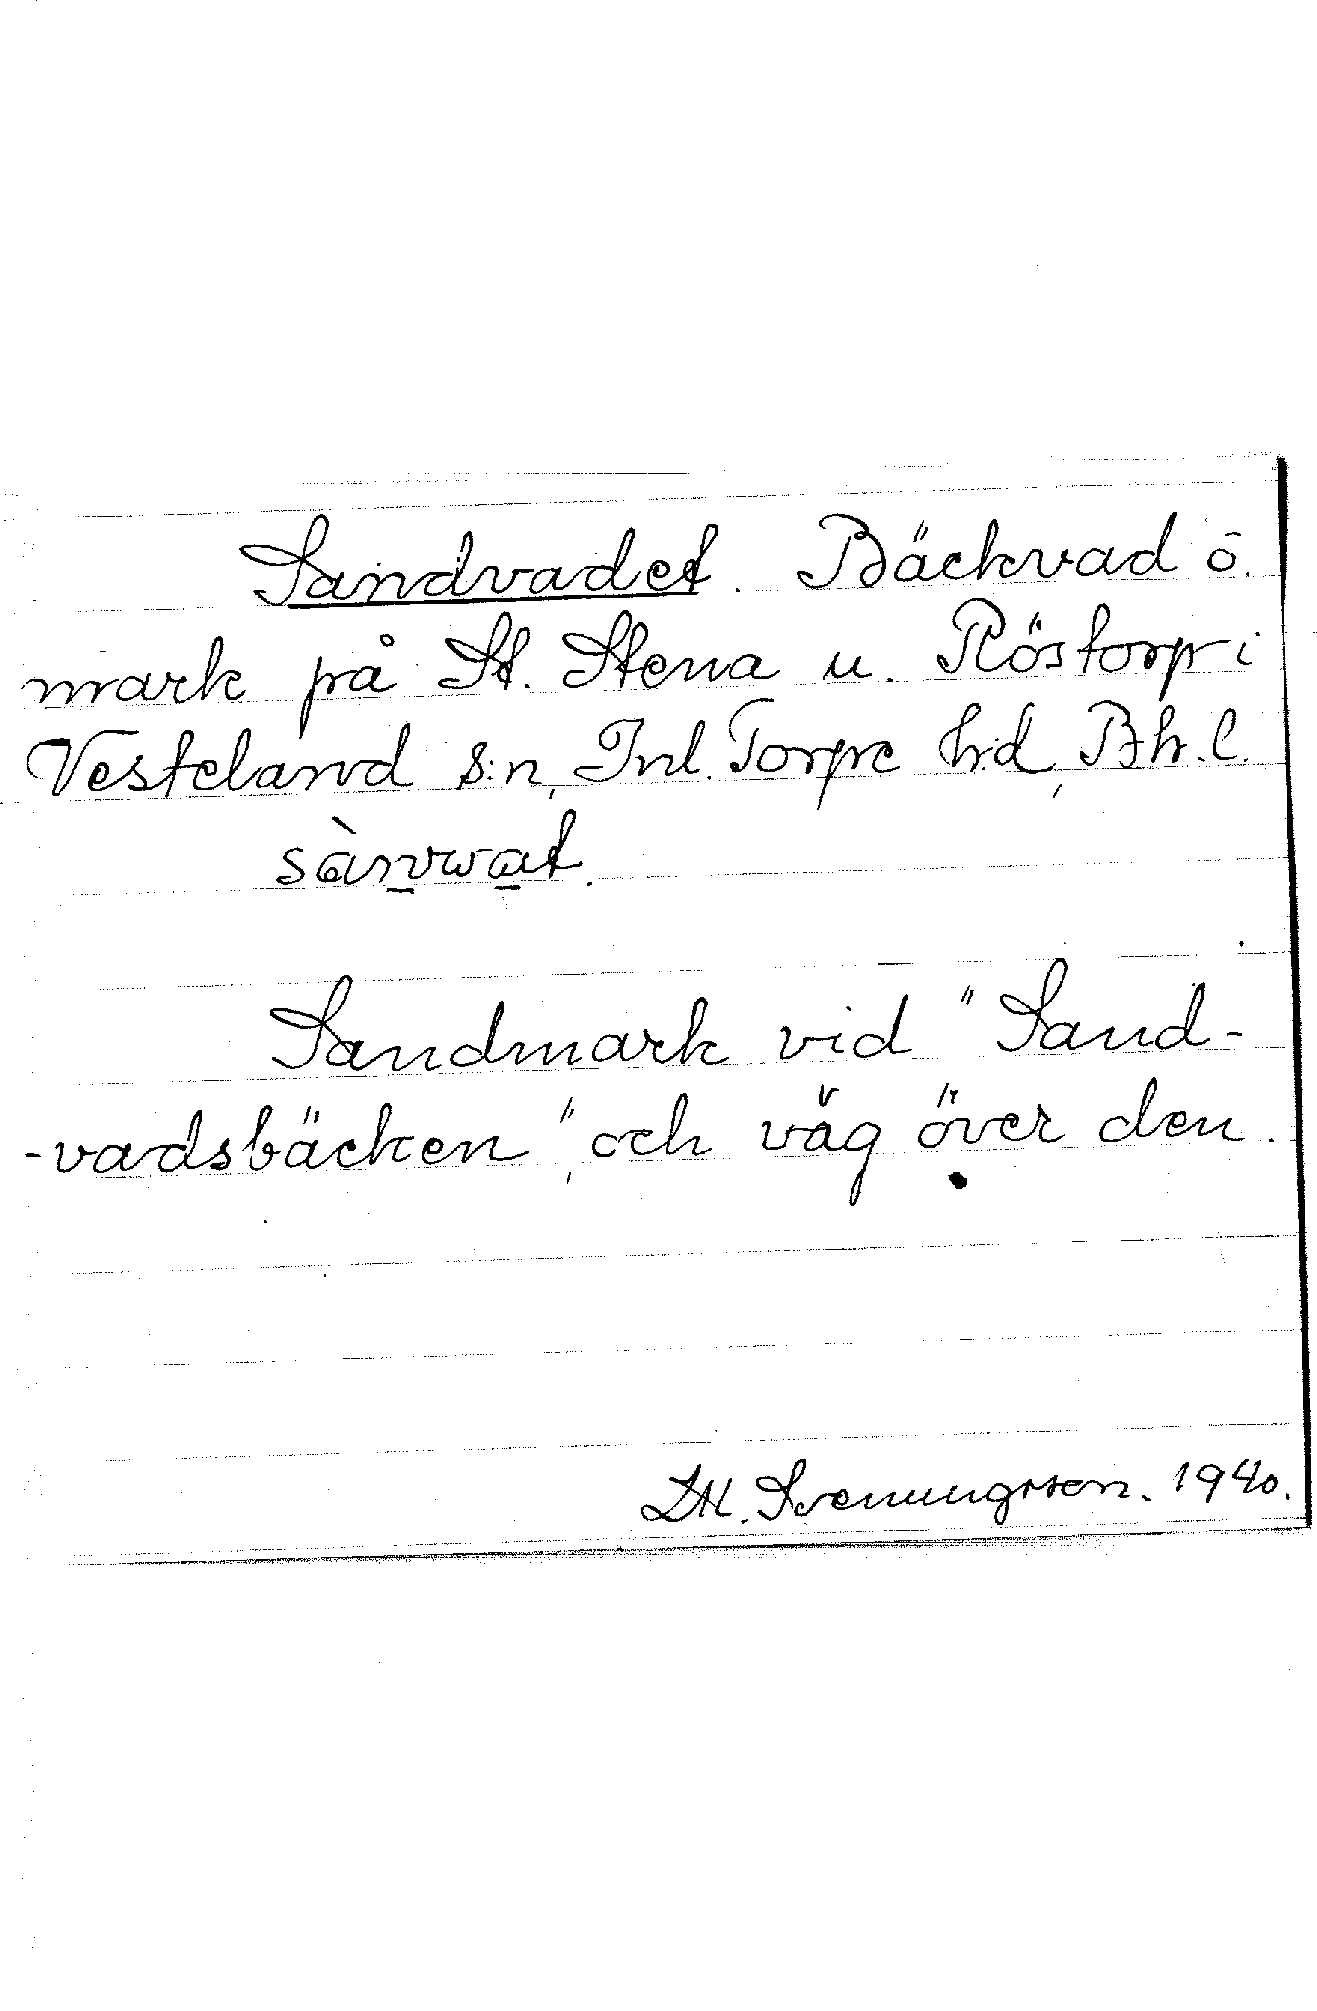 Sandvadet. Bäckvad ö.
mark på St. Stena u. Röstorp i
Vesteland s:n, Inl. Torpe h:d, Bh. l.
sànvwat.
Sandmark vid "Sand-
-vadsbäcken", och väg över den.
1940.